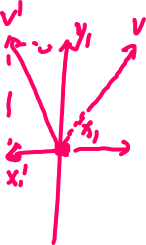 v' y₁ v
x₁
x₁'